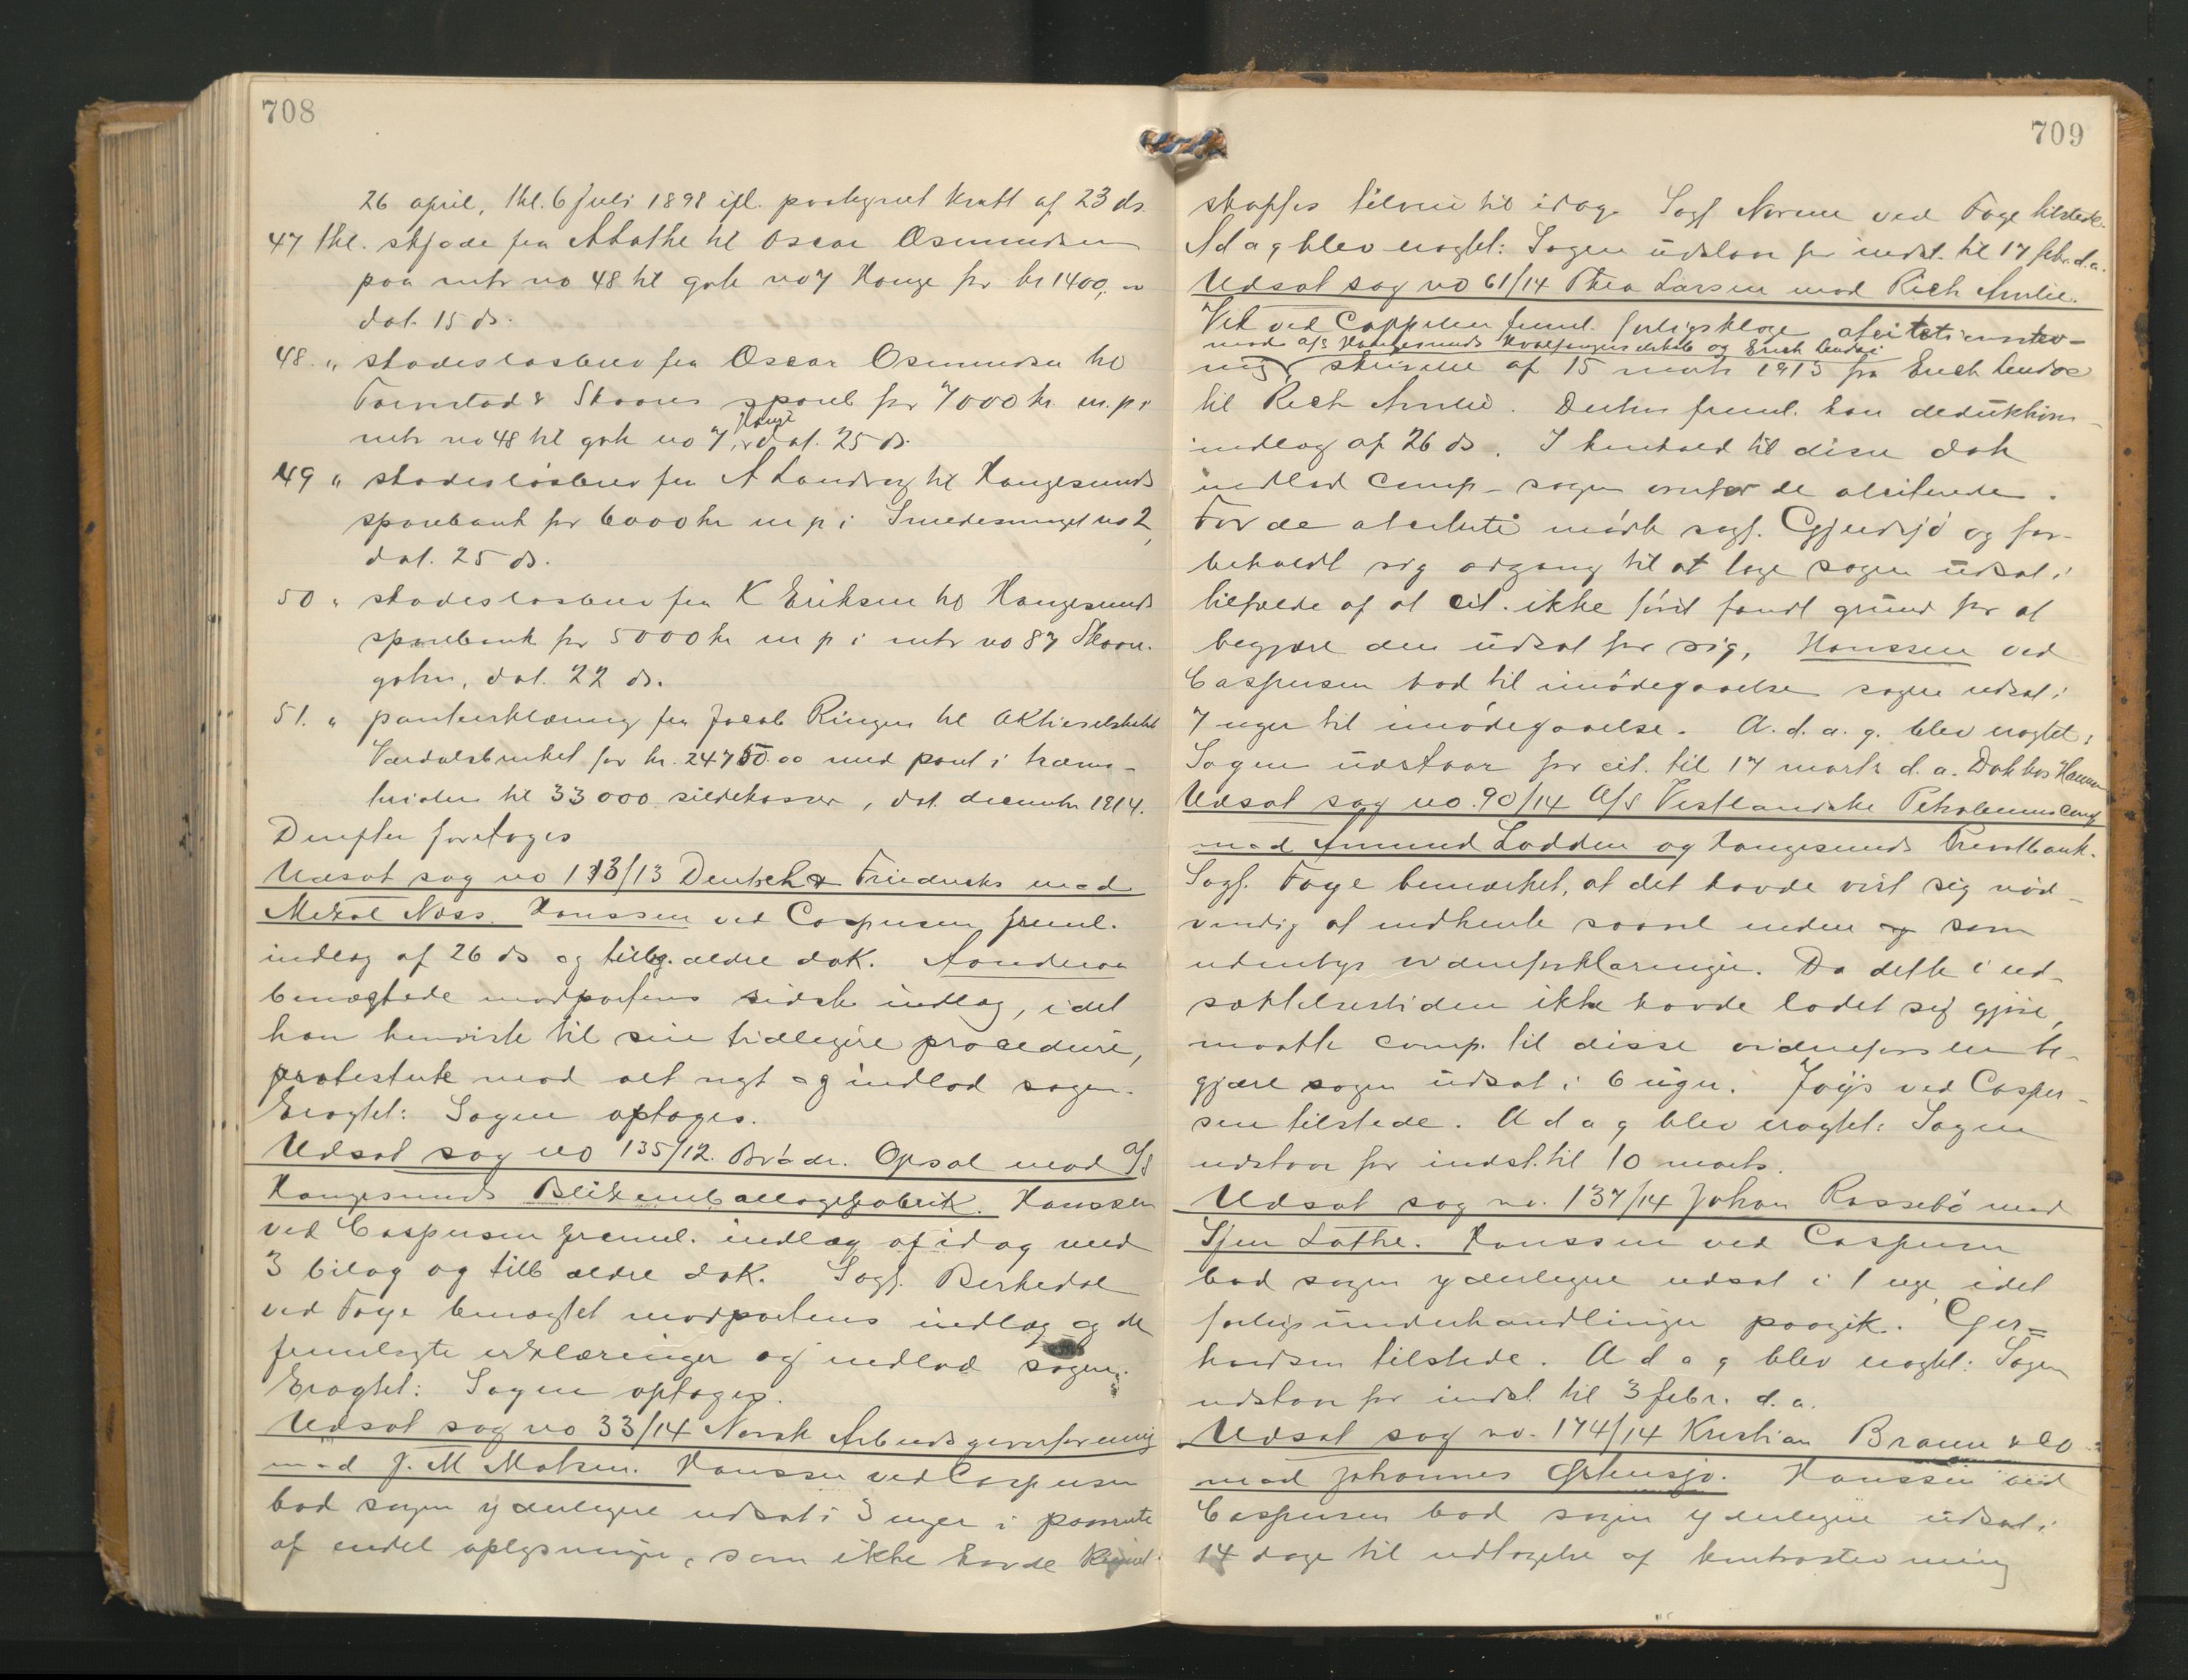 708
26 april, thl. 6 Juli 1898 ifl. paategnet kvitt af 23 ds.
47 thl. skjøde fra A Lothe til Oscar Osmundsen
paa mtr no 48 til gate no 7 Hauge for kr 1400,
dat. 15 ds.
48. " skadesløsbrev fra Oscar Osmundsen til
& Skaares spareb for 7000 kr. m. p i
mtr no 48 til gate no 7, Hauge dat. 25 ds.
49 " skadesløsbrev fra A Landvag til Haugesunds
sparebank for 6000 kr m p i Smedesmuget no 2,
dat. 25 ds.
50 " skadesløsbrev fra K Eriksen til Haugesunds
sparebank for 5000 kr m p i mtr no 87 Skaare-
gaten, dat. 22 ds.
51. " panteerklæring fra Jacob Ringen til Aktieselskabet
Værdalsbruket for kr. 24750.00 med pant i
til 33000 sildekasser, dat. december 1914.
Derefter foretoges
Udsat sag no 113/13 Deutsch & Friedrichs mod
Mikal Næss. Hanssen ved Caspersen freml.
indlæg af 26 ds og tilbg. ældre dok.
benægtede modpartens sidste indlæg, idet
han henviste til sin tidligere procedure,
protesterte mod alt nyt og indlod sagen.
Eragtet: Sagen optages.
Udsat sag no 135/12. Brødr. Opsal mod A/S
Haugesunds Blikemballagefabrik. Hanssen
ved Caspersen freml. indlæg af idag med
3 bilag og tilb ældre dok. Sagf. Birkedal
ved Faye benægtet modpartens indlæg og de
fremlagte erklæringer og indlod sagen.
Eragtet: Sagen optages.
Udsat sag no 33/14 Norsk Arbeidsgiverforening
mod J. M Matsen. Hanssen ved Caspersen
bad sagen yderligere udsat i 3 uger i paavente
af endel oplysninger, som ikke havde kunnet
709
skaffes tilveie til idag. Sagf Norem ved Faye tilstede.
A d a g blev eragtet: Sagen udstaar for indst. til 17 febr. d.a.
Udsat sag no 61/14 Thea Larsen mod Rich Amlie.
ved Cappelen freml. forligsklage afcitationsstev-
mod A/S Haugesunds Hvalfangerselskab og Erich Lindøe
ning, skrivelse af 15 marts 1913 fra Erich Lindøe
til Rich Amlie. Derhos freml. han deduktions-
indlæg af 26 ds. I henhold til disse dok
indlod comp. sagen overfor de afciterede.
For de afciterte mødte sagf. Gjerdsjø og for-
beholdt sig adgang til at tage sagen udsat i
tilfælde af at cit. ikke først fandt grund for at
begjære den udsat for sig. Hanssen ved
Caspersen bad til imødegaaelse sagen udsat i
7 uger til imødegaaelse. A. d. a. g. blev eragtet:
Sagen udstaar for cit. til 17 marts d. a. Dok hos Hanssen
Udsat sag no. 90/14 A/S Vestlandske Petroleumscomp
mod Amund Lodden og Haugesunds Privatbank.
Sagf. Faye bemærket, at det havde vist sig nød-
vendig at indhente saavel inden og som
udenbys vidneforklaringer. Da dette i ud-
sættelsestiden ikke havde ladet sig gjøre,
maatte comp. til disse vidneførsler be-
gjære sagen udsat i 6 uger. Joys ved Casper-
sen tilstede. A d a g blev eragtet: Sagen
udstaar for indst. til 10 marts.
Udsat sag no. 137/14 Johan Rossebø mod
Sjur Lothe. Hanssen ved Caspersen
bad sagen yderligere udsat i 1 uge, idet
forligsunderhandlinger paagik. Ger=
hardsen tilstede. A d a g blev eragtet: Sagen
udstaar for indst til 3 febr. d. a.
Udsat sag no. 174/14 Kristian Braun & Co
mod Johannes Ørtensjø. Hanssen ved
Caspersen bad sagen yderligere udsat i
14 dage til udtagelse af kontrastevning